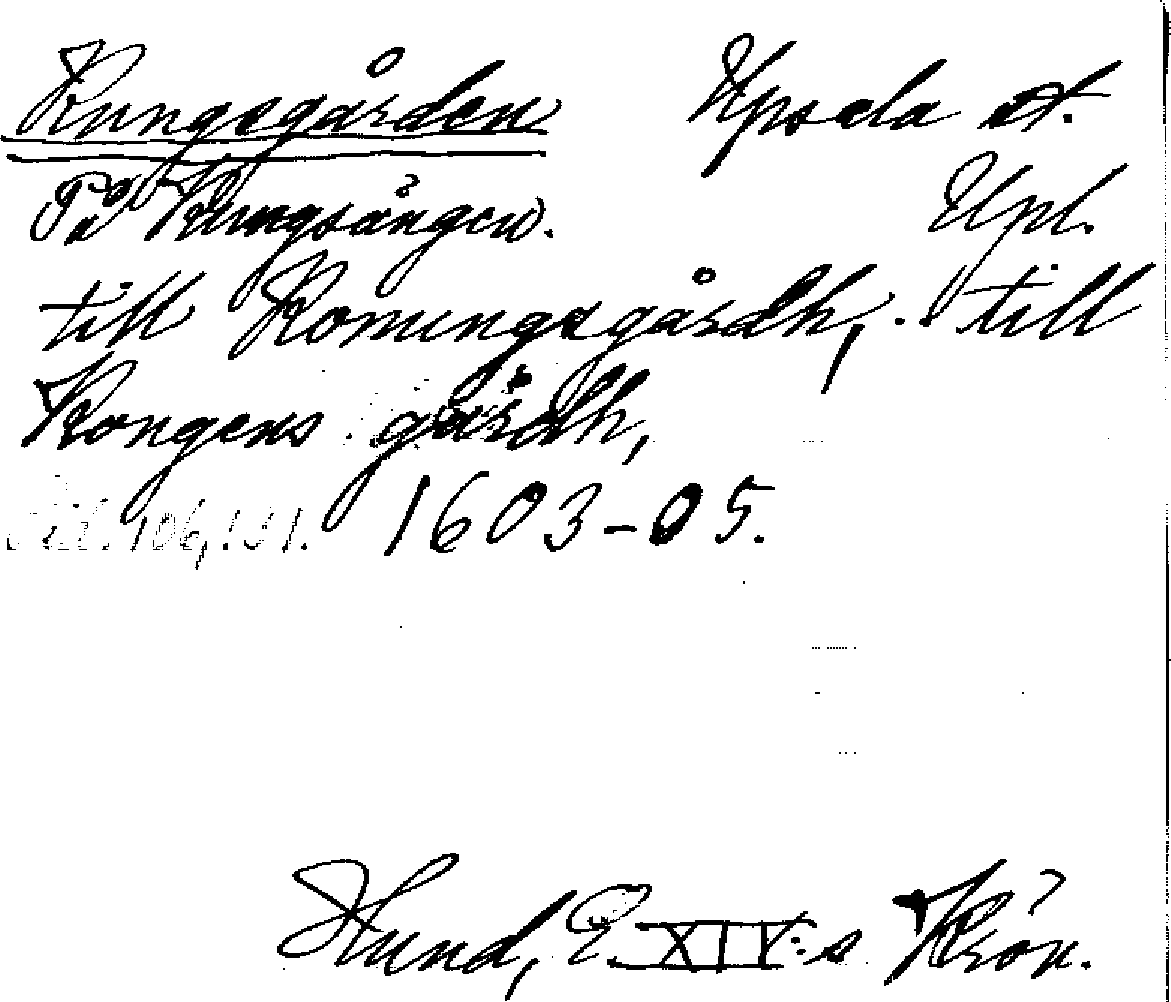 Kungsgården Upsala st.
På Kungsängen. Upl.
till Konungsgårdh, .. till
Kongens gårdh,
106, 1603-05.
Hund, E. XIV:s Krön.